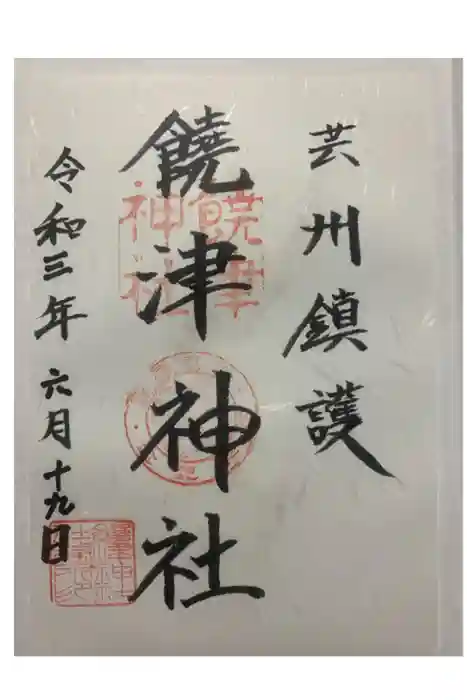 芸州鎮護
饒津神社
令和三年六月十九日
饒津神社